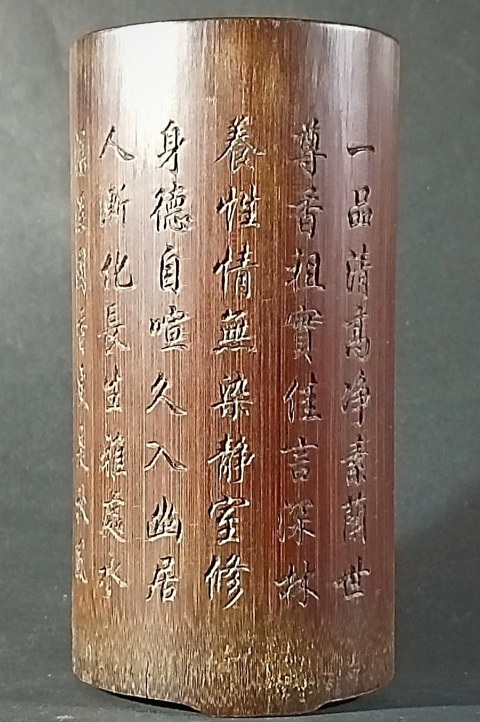 一品清高净素蘭世
尊香祖實佳言深林
養性情無染靜室修
身德自喧久入幽居
人漸化長生雅處水